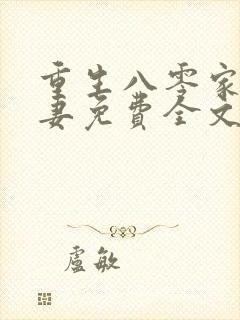 重生八零家
妻免费全文
盧敏